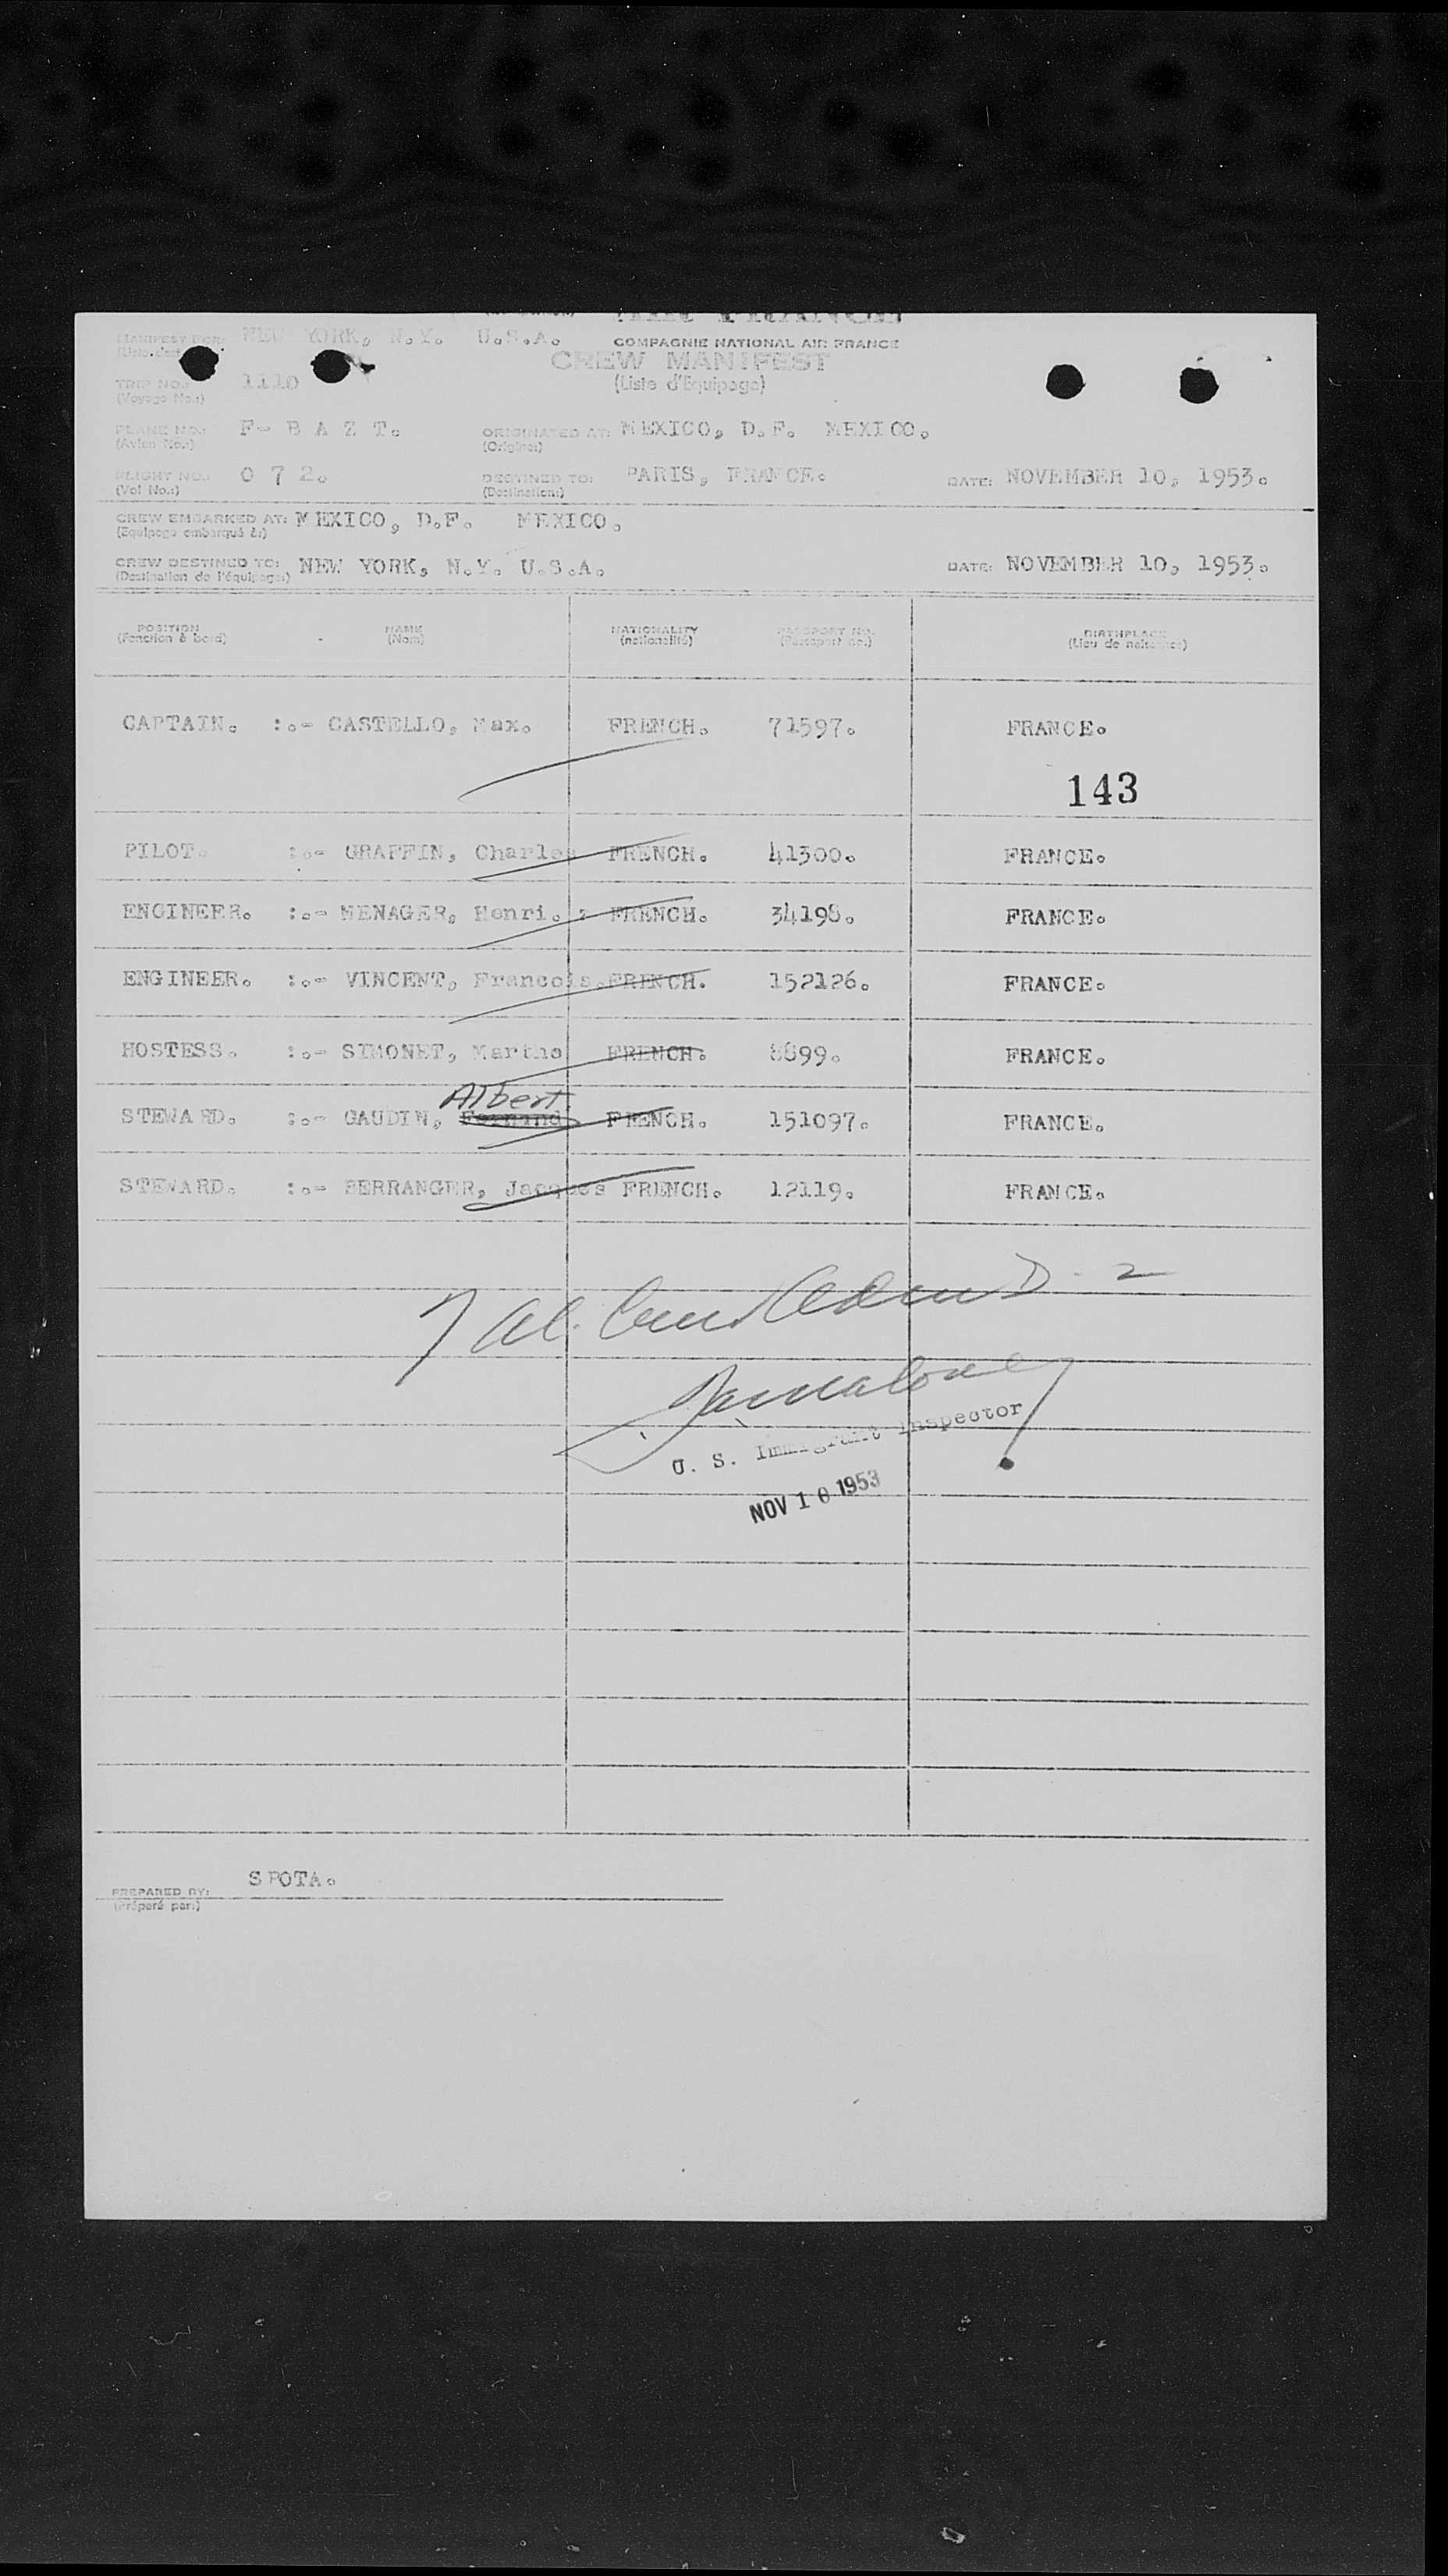 AIR FRANCE
MANIFEST FOR: NEW YORK, N.Y. U.S.A. COMPAGNIE NATIONAL AIR FRANCE
CREW MANIFEST
TRIP NO.: 1110 (Liste d'Equipage)
(Voyage No.:)
PLANE NO.: F- B A Z T. ORIGINATED AT: MEXICO, D.F. MEXICO.
(Avion No.:) (Origine:)
FLIGHT NO.: 0 7 2. DESTINED TO: PARIS, FRANCE. DATE: NOVEMBER 10, 1953.
(Vol No.:) (Destination:)
CREW EMBARKED AT: MEXICO, D.F. MEXICO.
(Equipage embarqué à:)
CREW DESTINED TO: NEW YORK, N.Y. U.S.A. DATE: NOVEMBER 10, 1953.
(Destination de l'équipage:)
POSITION NAME NATIONALITY PASSPORT NO. BIRTHPLACE
(Fonction à bord) (Nom) (nationalité) (Passeport no.) (Lieu de naissance)
CAPTAIN. :.- CASTELLO, Max. FRENCH. 71597. FRANCE.
143
PILOT. :.- GRAFFIN, Charles FRENCH. 41300. FRANCE.
ENGINEER. :.- MENAGER, Henri. : FRENCH. 34198. FRANCE.
ENGINEER. :.- VINCENT, Francois. FRENCH. 152126. FRANCE.
HOSTESS. :.- SIMONET, Marthe FRENCH. 8899. FRANCE.
Albert.
STEWARD. :.- GAUDIN, Fernand FRENCH. 151097. FRANCE.
STEWARD. :.- BERRANGER, Jacques FRENCH. 12119. FRANCE.
7 al. Crew Adm D-2
U. S. Immigrant Inspector
NOV 10 1953
PREPARED BY: SPOTA.
(Préparé par:)